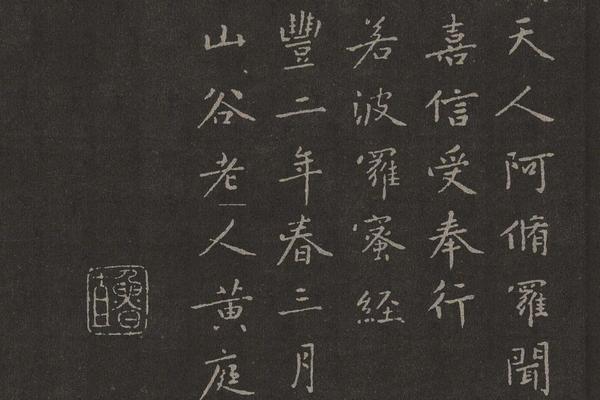 天人阿脩羅聞
嘉信受奉行
若波羅蜜経
豐二年春三月
山谷老人黄庭
魯直